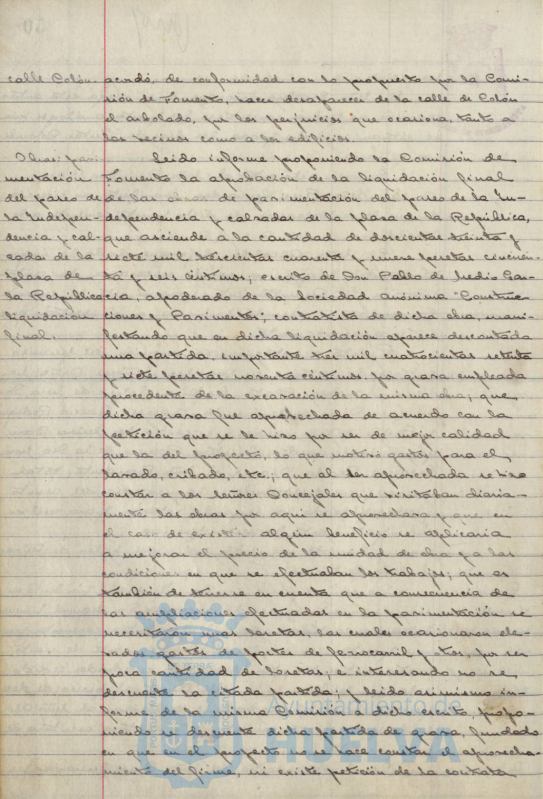 calle Colón. acordó, de conformidad con lo propuesto por la Comi-
sión de Fomento, hacer desaparecer de la calle de Colón
el arbolado, por los perjuicios que ocasiona, tanto a
los vecinos como a los edificios.
Obras pavi- Leido informe proponiendo la Comisión de
mentación Fomento la aprobación de la liquidación final
del paseo de de las obras de pavimentación del paseo de la In-
la Indepen- dependencia y calzadas de la plaza de la República,
dencia y cal- que asciende a la cantidad de doscientas treinta y
zadas de la siete mil trescientas cuarenta y nueve pesetas cincuen-
plaza de ta y seis céntimos; escrito de Don Pablo de Medio Gar-
la República cia, apoderado de la Sociedad anónima "Construc-
liquidación ciones y Pavimentos", contratista de dicha obra, mani-
final. festando que en dicha liquidación aparece descontada
una partida, importante tres mil cuatrocientas setenta
y siete pesetas noventa céntimos, por grava empleada
procedente de la excavación de la misma obra; que
dicha grava fue aprovechada de acuerdo con la
petición que se le hizo por ser de mejor calidad
que la del proyecto, lo que motivó gastos para el
lavado, cribado, etc.; que al ser aprovechada se hizo
constar a los Señores Concejales que visitaban diaria-
mente las obras por aqui se aprovechara y que en
el caso de existir algún beneficio se aplicaria
a mejorar el precio de la unidad de obra y a las
condiciones en que se efectuaban los trabajos; que es
también de tenerse en cuenta que a consecuencia de
las ampliaciones efectuadas en la pavimentación se
necesitaron unas losetas, las cuales ocasionaron ele-
vados gastos de portes de ferrocarril y otros, por ser
poca cantidad de losetas, e interesando no se
descuente la citada partida; y leido asimismo in-
forme de la misma Comisión a dicho escrito, propo-
niendo se descuente dicha partida de grava, fundado
en que en el proyecto no se hace constar el aprovecha-
miento del firme, ni existe petición de la contrata
Ayuntamiento de
HUELVA